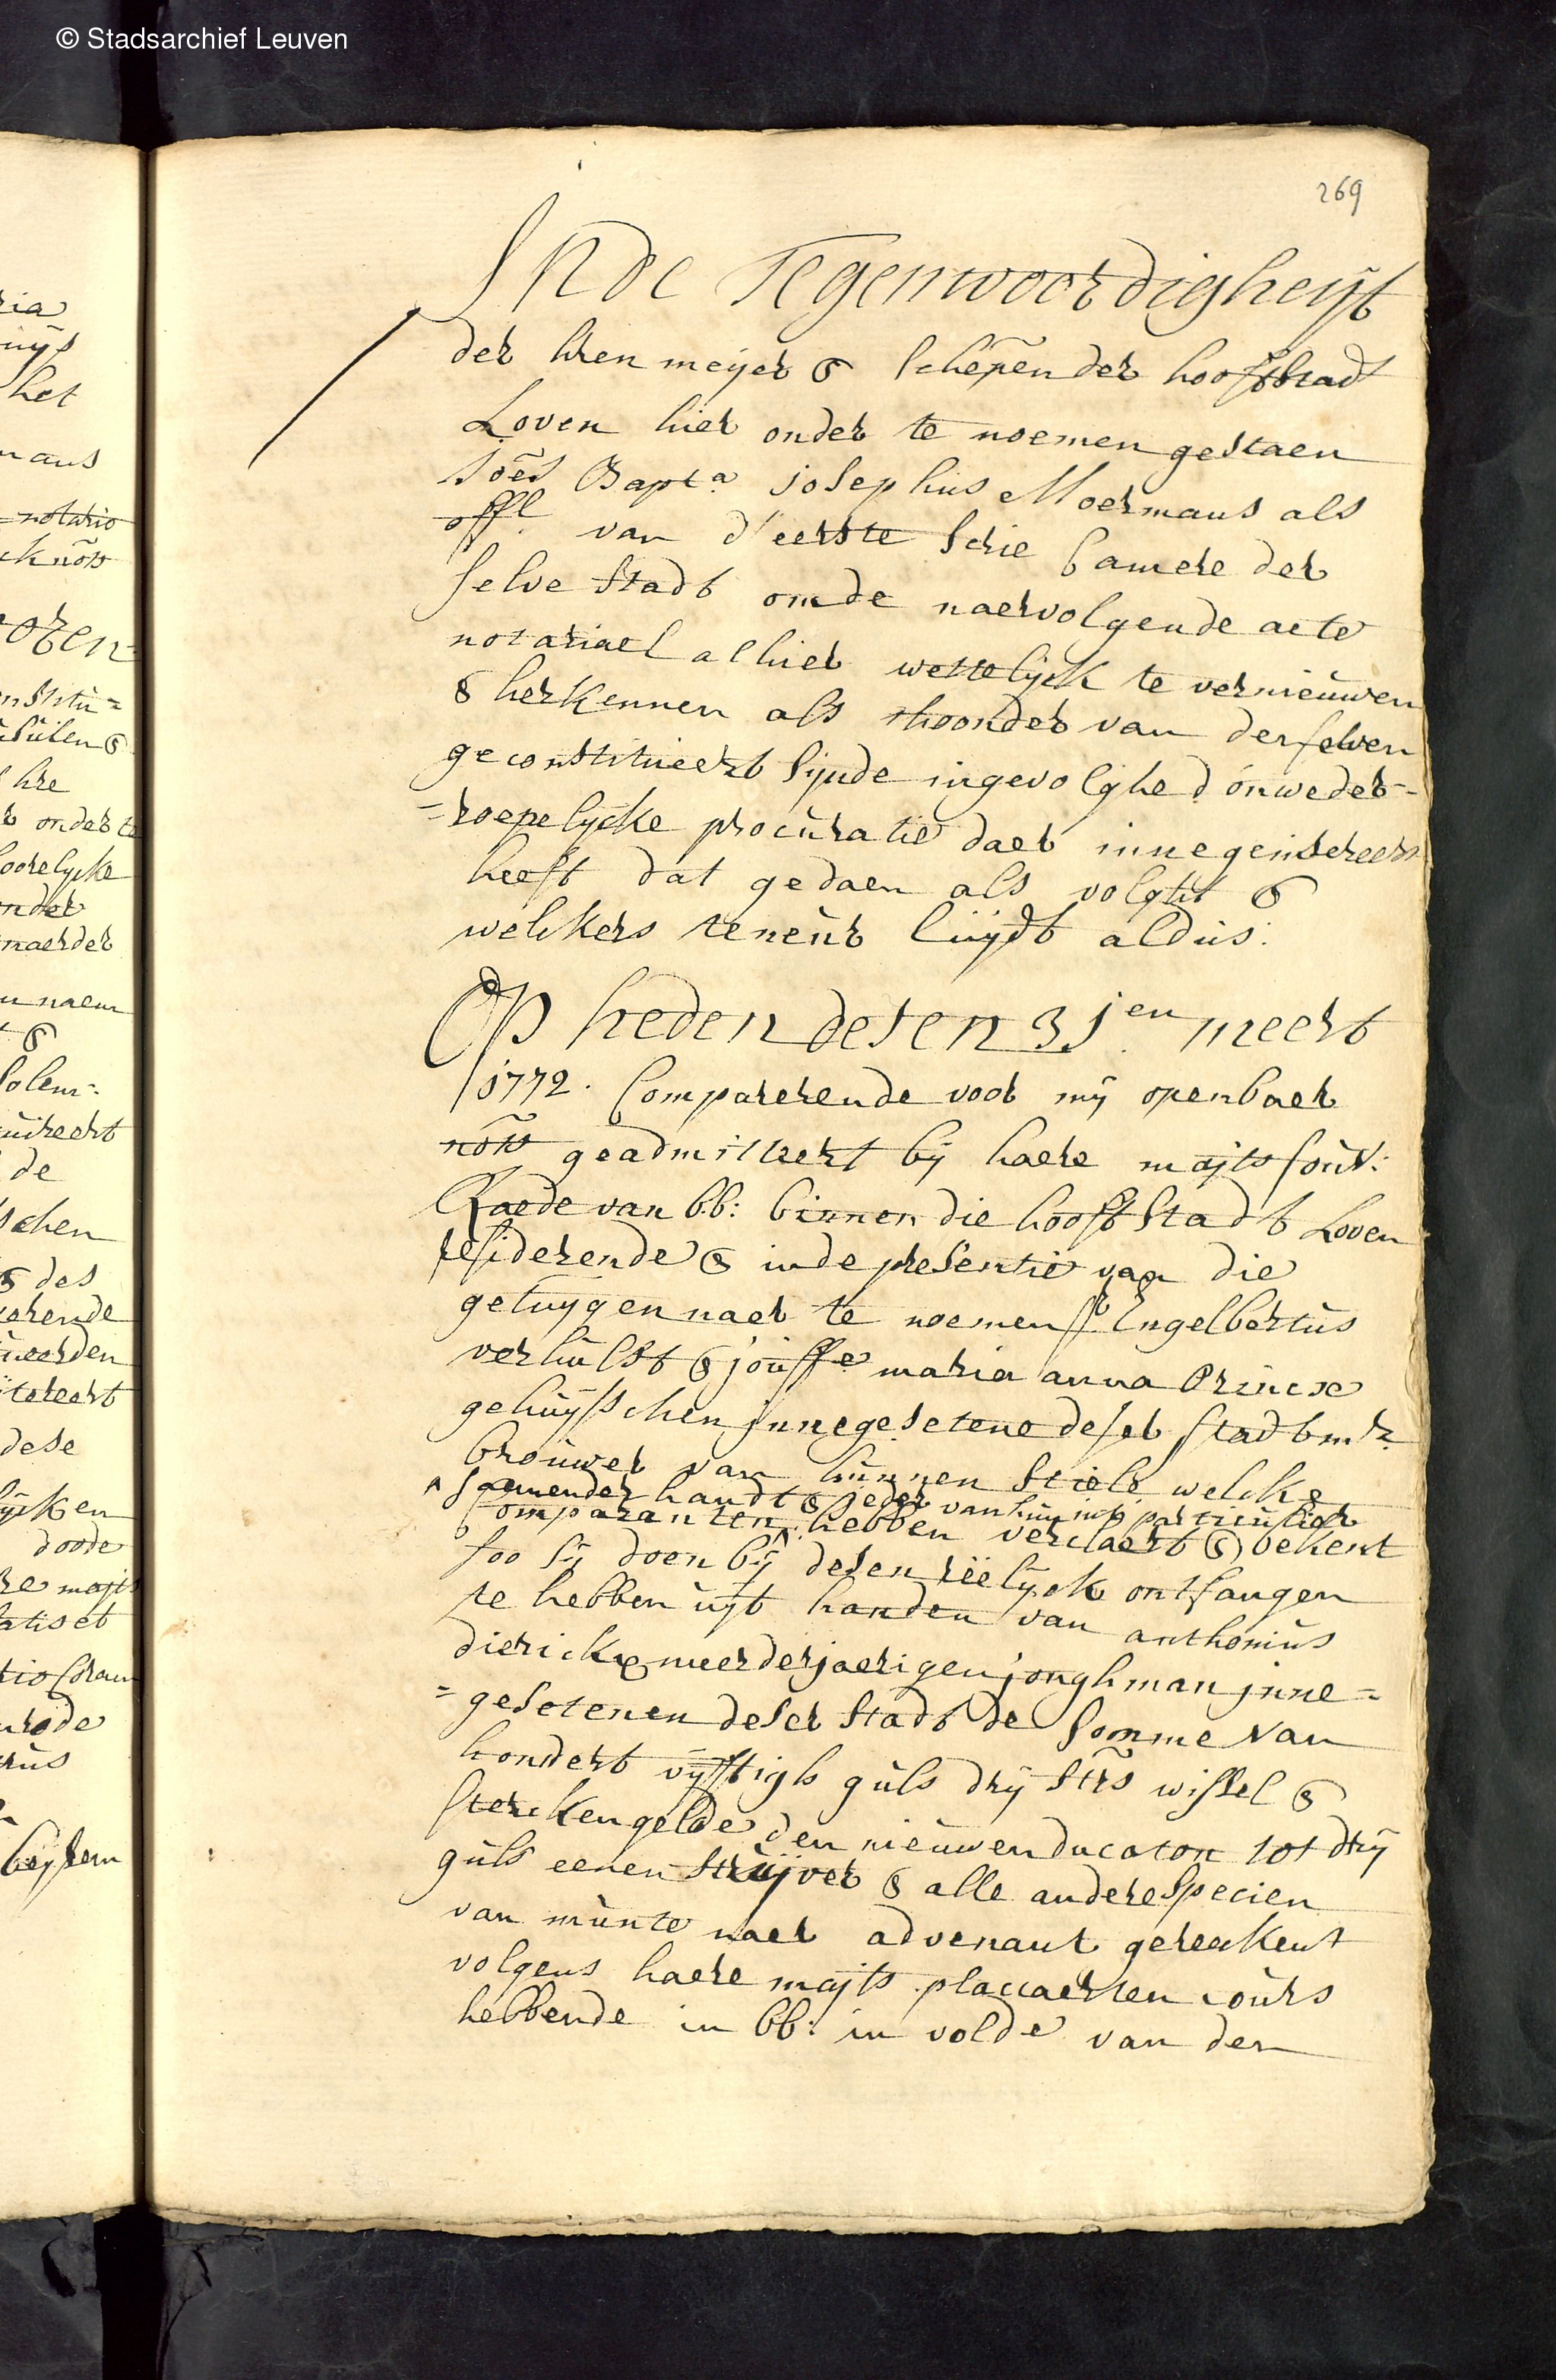 © Stadsarchief Leuven
269
In de Tegenwoordigheijt
der hren meijer & schepen̄ der hooftstadt
Loven hier onder te noemen gestaen
Joēs Bapta Josephus Moermans als
offl van d'eerste Secrie Camere der
selve stadt om de naervolgende acte
notariael alhier wettelijck te vernieuwen
& herkennen als thoonder van der selven
geconstitueert sijnde ingevolghe d'onweder-
=roepelijcke procuratie daer inne geinsereert
heeft dat gedaen als volght &
welckers teneur luijdt aldus:
Op heden desen 31en meert
1772. Comparerende voor mij openbaer
nōtṡ geadmitteert bij haere majts souv:
Raede van bb: binnen die hooft stadt Loven
residerende & in de presentie van die
getuygen naer te noemen sr Engelbertus
verhulst & jouffe maria anna Princx
gehuijsschen innegesetene deser stadt mr
brouwer van hunnen stiele welcke
^ saemender handt & ieder van hun in't particulier
Comparanten ^ hebben verclaert & bekent
soo sij doen bij desen rëelijck ontfangen
te hebben uijt handen van anthonius
dierickx meerderjaerigen jonghman inne=
=gesetenen deser stadt de somme van
hondert vijftigh guls drij strs wissel &
stercken gelde den nieuwen ducaton tot drij
guls eenen stuijver & alle andere specien
van munte naer advenant gereekent
volgens haere majts placcaerten cours
hebbende in bb: in volde van den
ria
uijs
het
mans
=notario
ck nōtṡ
nstitu=
hre
r onder te
oorelycke
onder
naerder
n naem
&
solem=
uireert
de
schen
& des
erende
neerden
itereert
dese
lijcken
doode
re majts
rus
beijsem